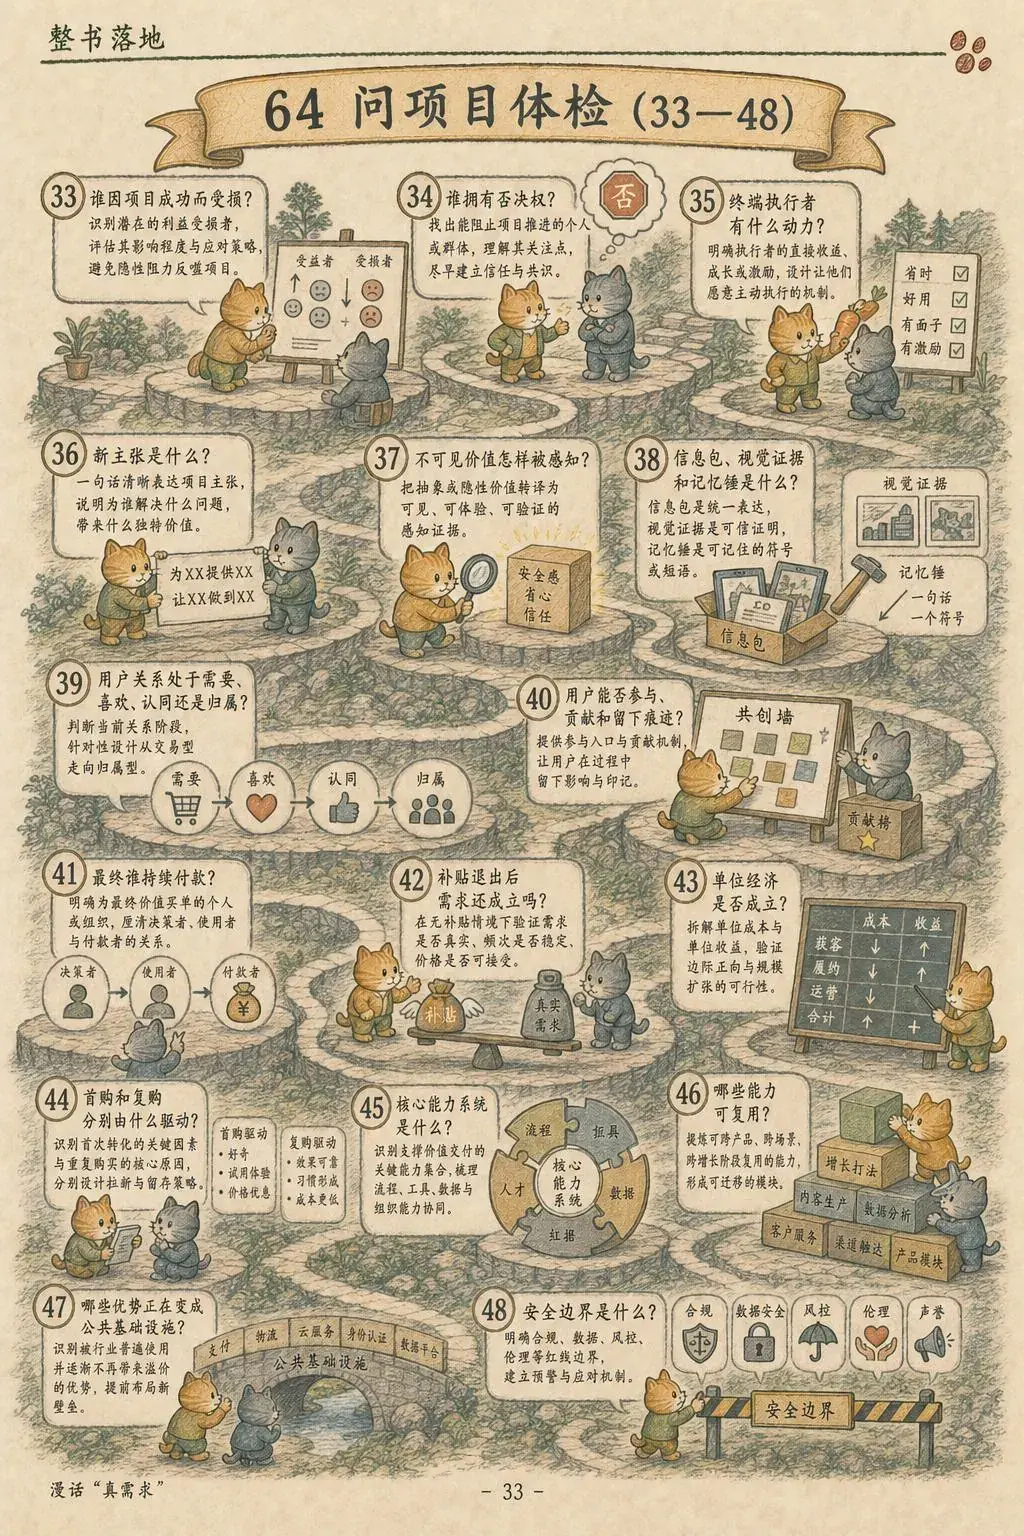 整书落地
64 问项目体检 (33—48)
33 谁因项目成功而受损?
识别潜在的利益受损者,
评估其影响程度与应对策略,
避免隐性阻力反噬项目。
受益者 受损者
34 谁拥有否决权?
找出能阻止项目推进的个人
或群体,理解其关注点,
尽早建立信任与共识。
否
35 终端执行者
有什么动力?
明确执行者的直接收益、
成长或激励,设计让他们
愿意主动执行的机制。
省时
好用
有面子
有激励
36 新主张是什么?
一句话清晰表达项目主张,
说明为谁解决什么问题,
带来什么独特价值。
为XX提供XX
让XX做到XX
37 不可见价值怎样被感知?
把抽象或隐性价值转译为
可见、可体验、可验证的
感知证据。
安全感
省心
信任
38 信息包、视觉证据
和记忆锤是什么?
信息包是统一表达,
视觉证据是可信证明,
记忆锤是可记住的符号
或短语。
信息包
视觉证据
记忆锤
一句话
一个符号
39 用户关系处于需要、
喜欢、认同还是归属?
判断当前关系阶段,
针对性设计从交易型
走向归属型。
需要 喜欢 认同 归属
40 用户能否参与、
贡献和留下痕迹?
提供参与入口与贡献机制,
让用户在过程中
留下影响与印记。
共创墙
贡献榜
41 最终谁持续付款?
明确为最终价值买单的个人
或组织,厘清决策者、使用者
与付款者的关系。
决策者 使用者 付款者
42 补贴退出后
需求还成立吗?
在无补贴情境下验证需求
是否真实、频次是否稳定、
价格是否可接受。
补贴
真实
需求
43 单位经济
是否成立?
拆解单位成本与
单位收益,验证
边际正向与规模
扩张的可行性。
成本 收益
获客 ↓ ↑
履约 ↓ ↑
运营 ↓
合计 ↑ +
44 首购和复购
分别由什么驱动?
识别首次转化的关键因素
与重复购买的核心原因,
分别设计拉新与留存策略。
首购驱动
• 好奇
• 试用体验
• 价格优惠
复购驱动
• 效果可靠
• 习惯形成
• 成本更低
45 核心能力系统
是什么?
识别支撑价值交付的
关键能力集合,梳理
流程、工具、数据与
组织能力协同。
流程
人才
数据
核心
能力
系统
46 哪些能力
可复用?
提炼可跨产品、跨场景、
跨增长阶段复用的能力,
形成可迁移的模块。
增长打法
内容生产 数据分析
客户服务 渠道触达 产品模块
47 哪些优势正在变成
公共基础设施?
识别被行业普遍使用
并逐渐不再带来溢价
的优势,提前布局新
壁垒。
支付 物流 云服务 身份认证 数据平台
公共基础设施
48 安全边界是什么?
明确合规、数据、风控、
伦理等红线边界,
建立预警与应对机制。
合规 数据安全 风控 伦理 声誉
安全边界
漫话“真需求”
- 33 -